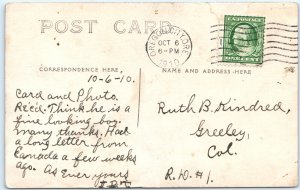 POST CARD
OCT 6
6-PM
1910
CORRESPONDENCE HERE,
AND NAME AND ADDRESS-HERE
10-6-10.
Card and Photo.
Rec'd. Think he is a
fine looking boy.
many thanks. Had
a long letter from
Canada a few weeks
ago. As Ever yours
Ruth B. Kindred,
Greeley,
Col.
R.D. #1.